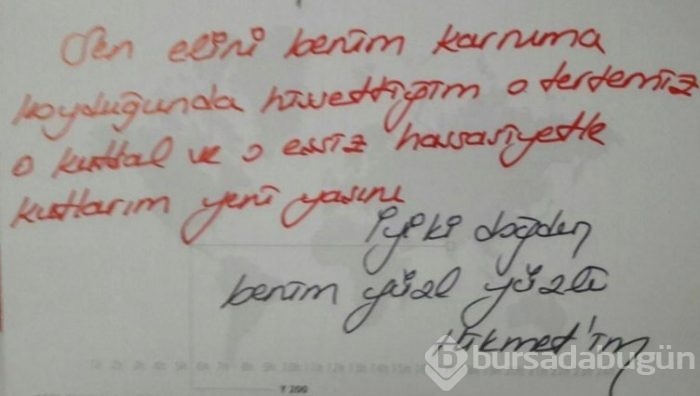 Sen elini benim karnıma
koyduğunda hissettiğim o tertemiz
o kutsal ve o eşsiz hassasiyetle
kutlarım yeni yaşını
iyi ki doğdun
benim güzel yüzlü
Hikmet'im
bursadabugün
Y 200